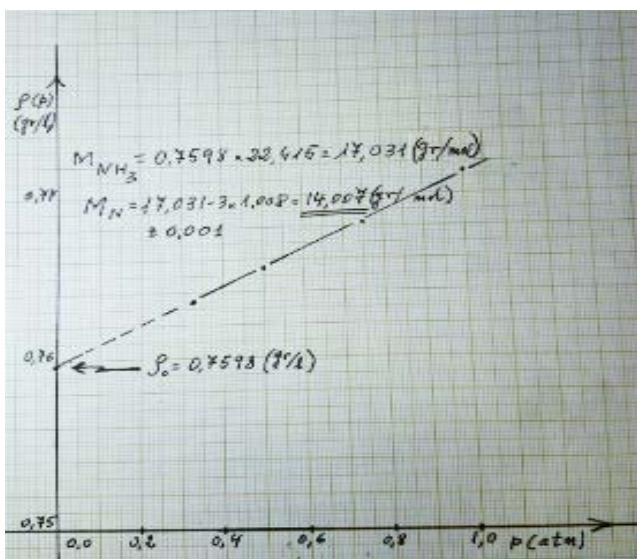 ρ(p)
(gr/l)
M NH₃ = 0,7598 × 22,415 = 17,031 (gr/mol)
0,77
M N = 17,031 - 3 × 1,008 = 14,007 (gr/mol)
± 0,001
0,76
ρ₀ = 0,7598 (gr/l)
0,75
0,0 0,2 0,4 0,6 0,8 1,0 p (atm)